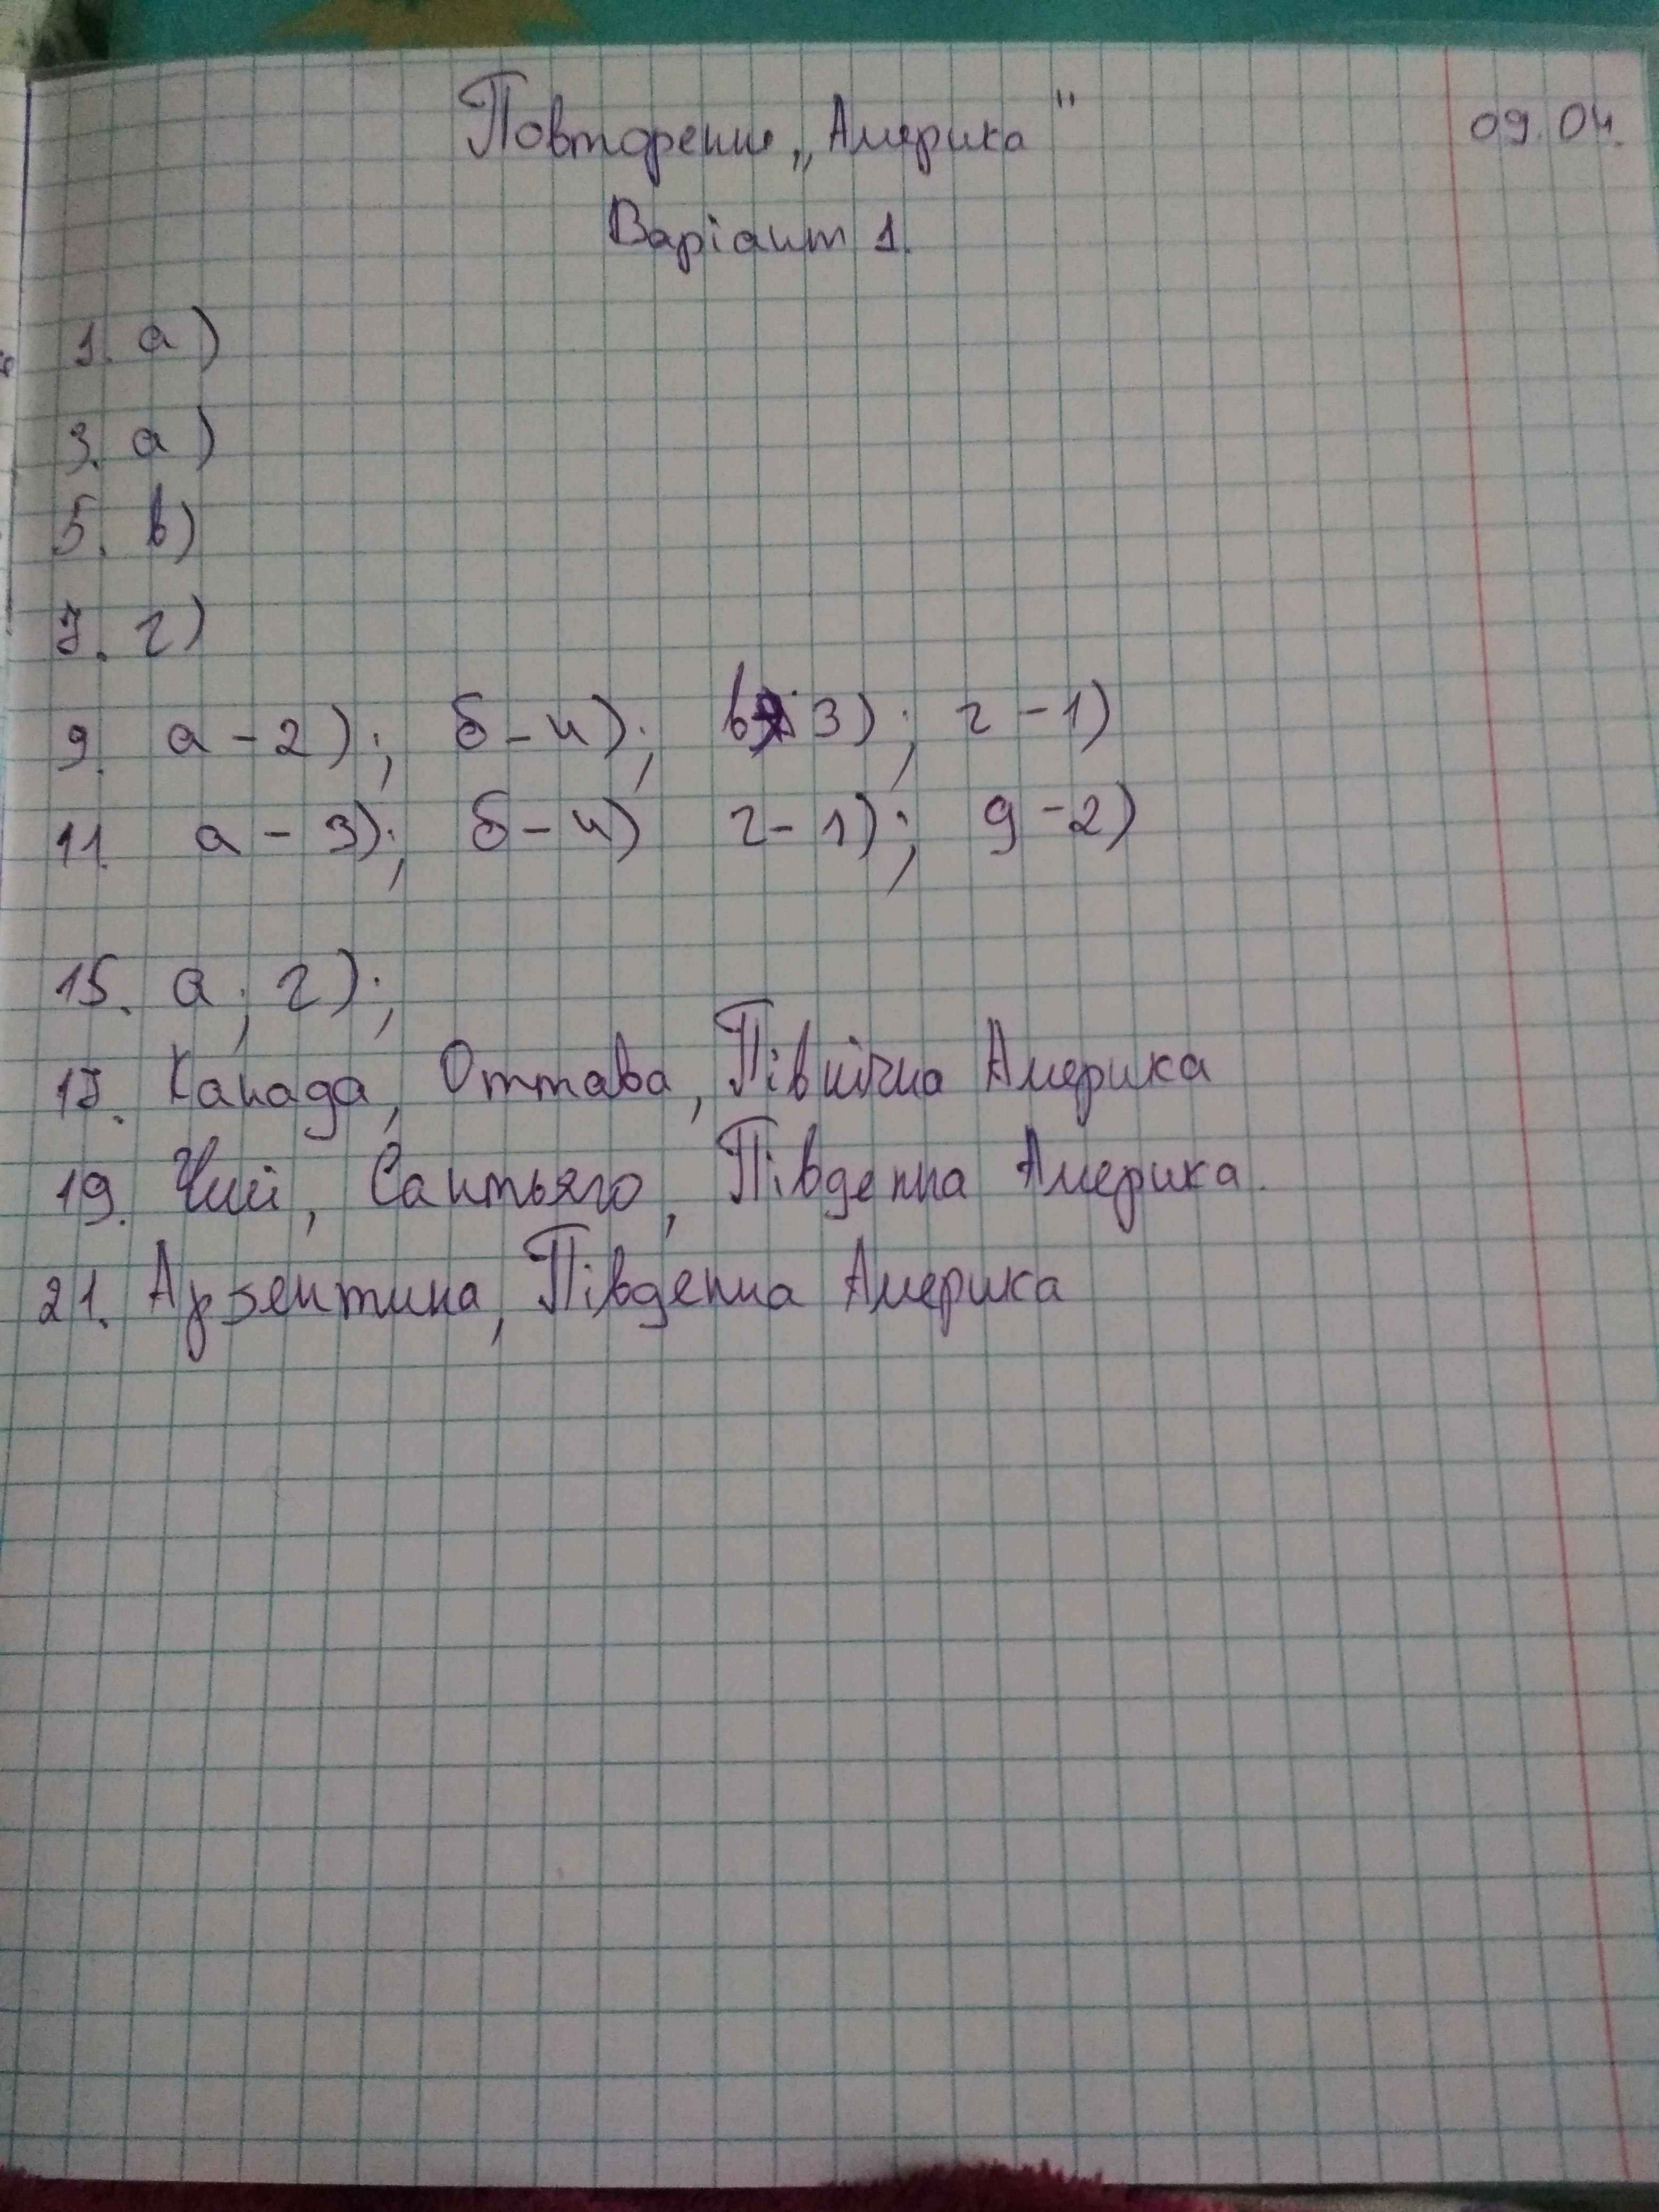 Повторение „Америка"
09.04.
Варіант 1.
1. а)
3. а)
5. в)
7. г)
9. а - 2); б - 4); в 3); г - 1)
11. а - 3); б - 4) г - 1); д - 2)
15. а; г);
17. Канада, Оттава, Північна Америка
19. Чилі, Сантьяго, Південна Америка.
21. Арзентина, Південна Америка